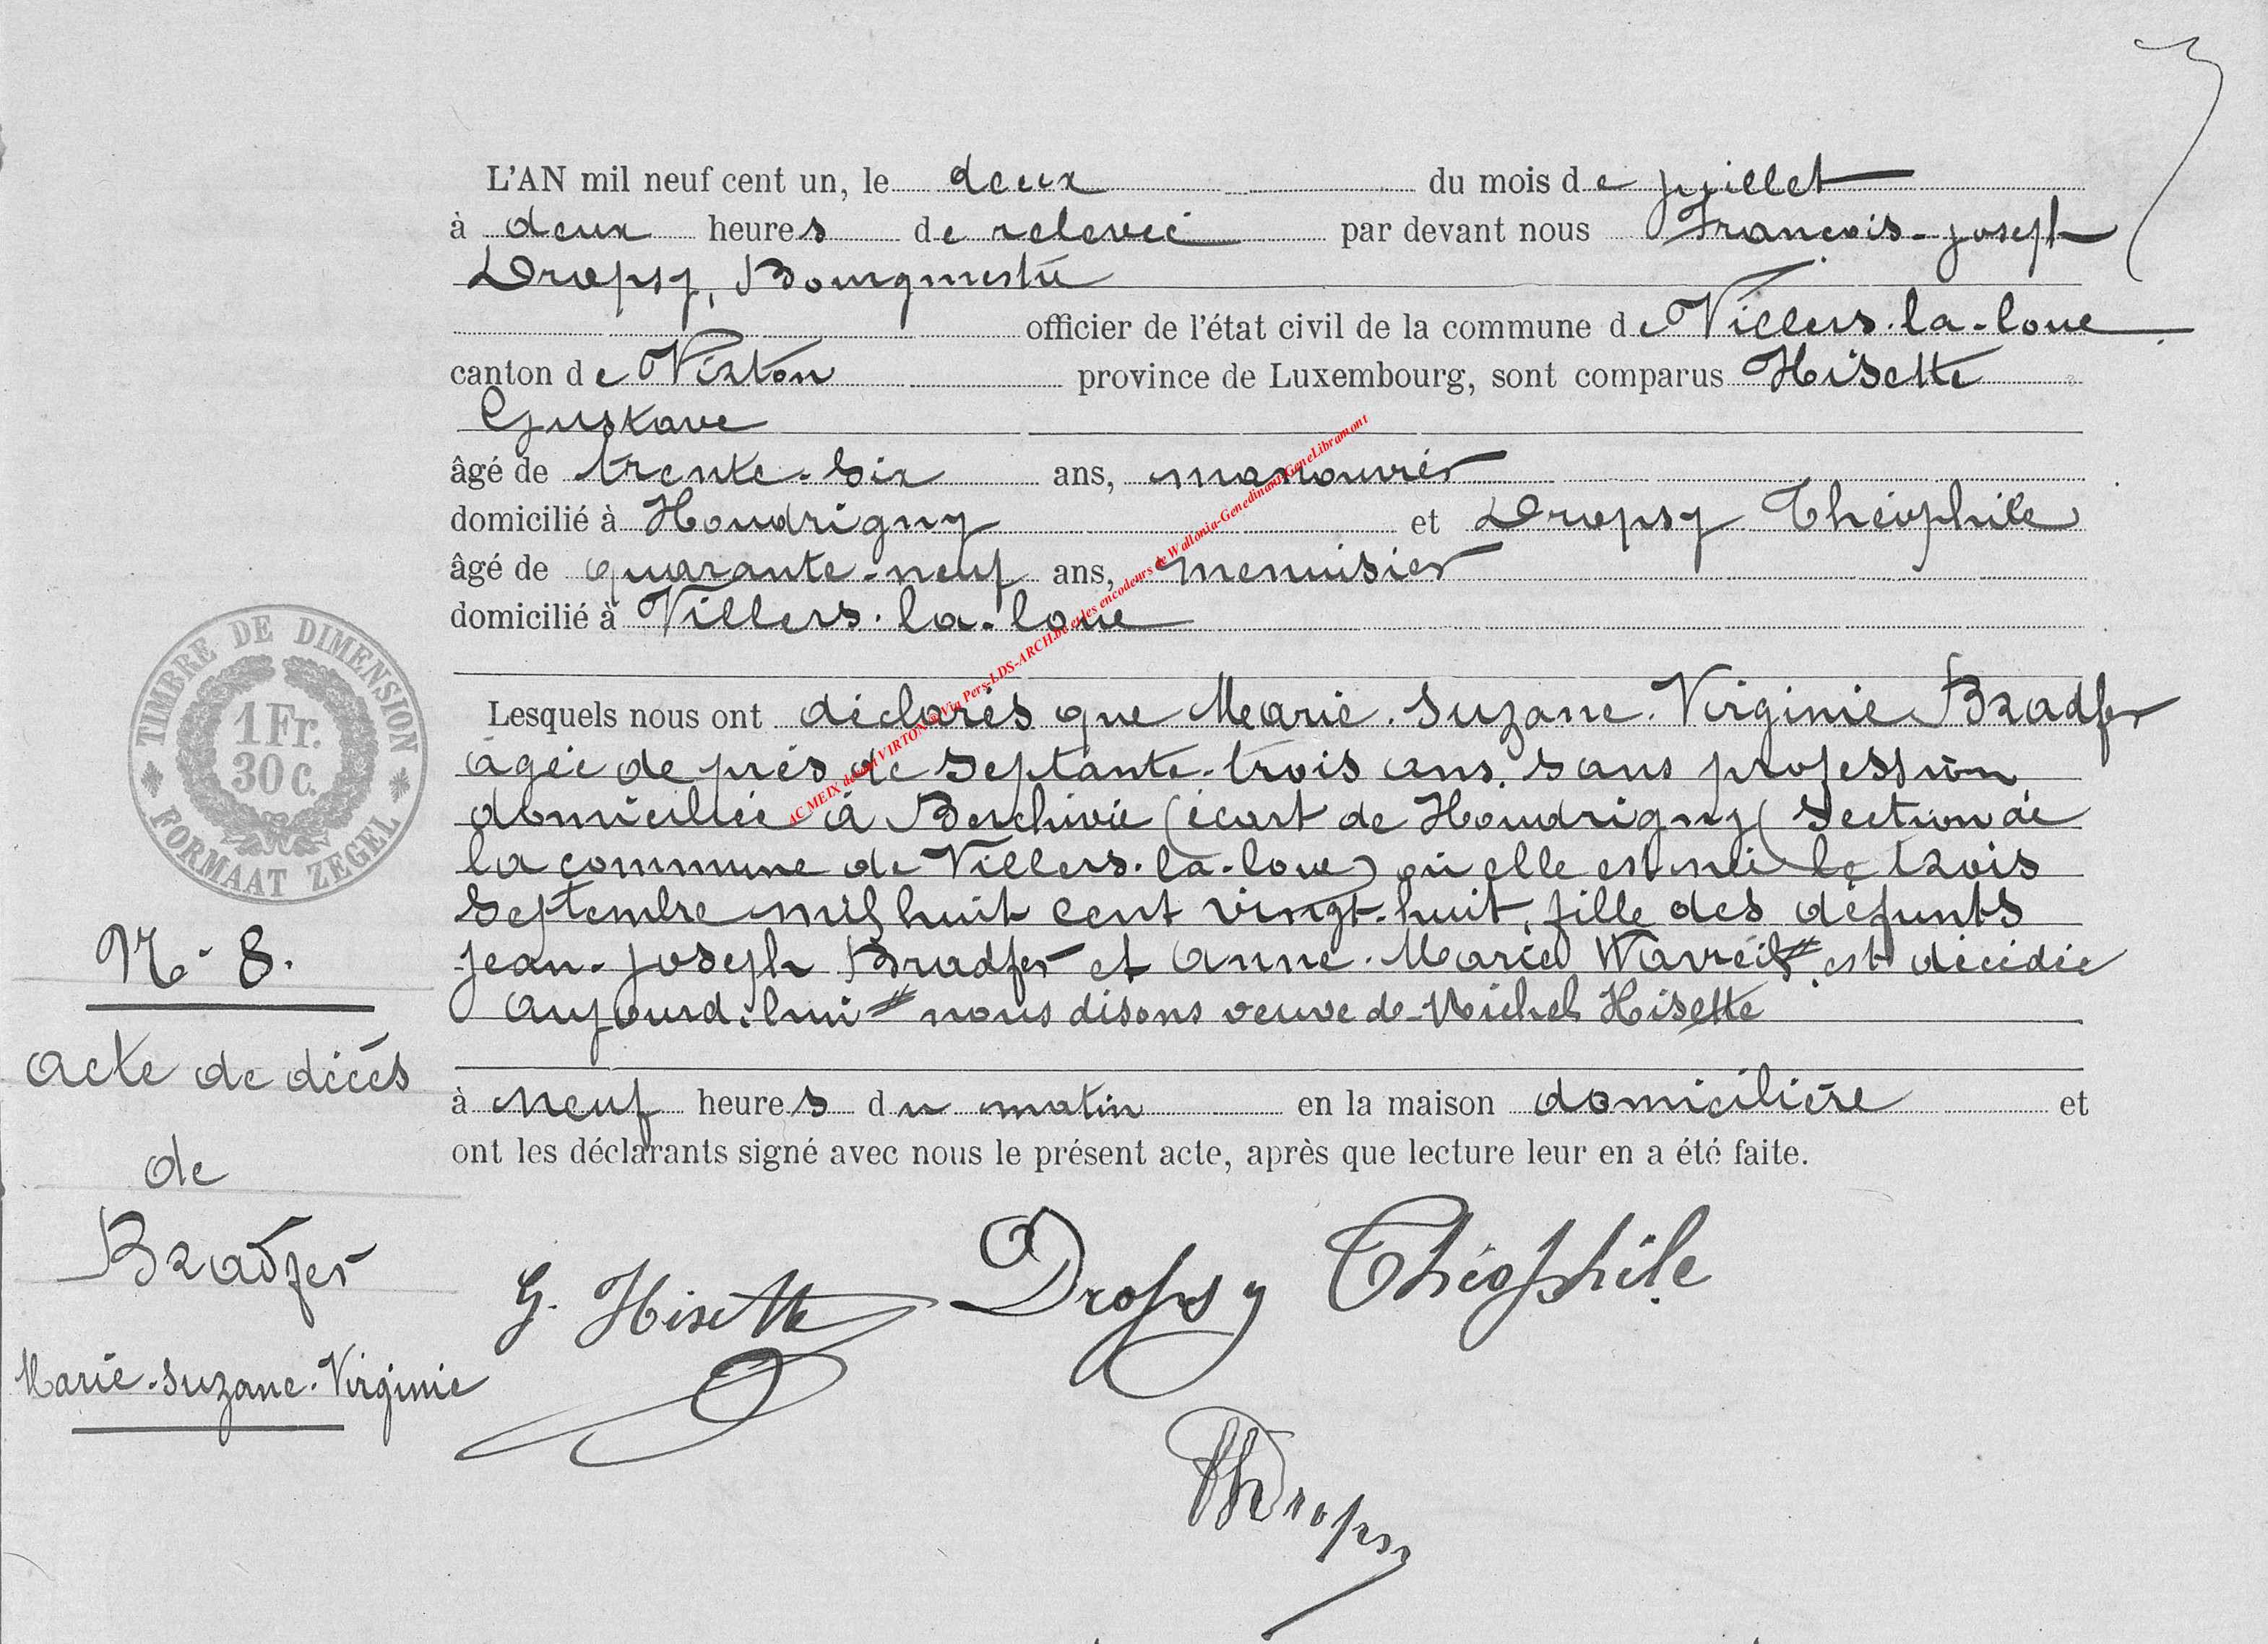 L'AN mil neuf cent un, le deux du mois de juillet
à deux heures de relevée par devant nous François-joseph
Dropsy, Bourgmestre
officier de l'état civil de la commune de Villers-la-loue
canton de Virton province de Luxembourg, sont comparus Hisette
Gustave
âgé de trente-six ans, manouvrier
domicilié à Houdrigny et Dropsy Théophile
âgé de quarante-neuf ans, menuisier
domicilié à Villers-la-loue
Lesquels nous ont déclarés que Marie-Suzane-Virginie Bradfer
agée de près de septante-trois ans, sans profession
domiciliée à Berchivée (écart de Houdrigny (section de
la commune de Villers-la-loue) où elle est née le trois
septembre mil huit cent vingt-huit, fille des défunts
jean-joseph Bradfer et anne-Marie # est décédée
aujourd'hui # nous disons veuve de Michel Hisette
à neuf heures du matin en la maison domicilière et
ont les déclarants signé avec nous le présent acte, après que lecture leur en a été faite.
TIMBRE DE DIMENSION
1 Fr.
30 c.
FORMAAT ZEGEL
N° 8.
acte de décès
de
Bradfer
Marie-Suzane-Virginie
G. Hisette Dropsy Théophile
Dropsy
AC MEIX devant VIRTON® Via Pers-LDS-ARCH.be et les encodeurs de Wallonia-Genedinant-GeneLibramont